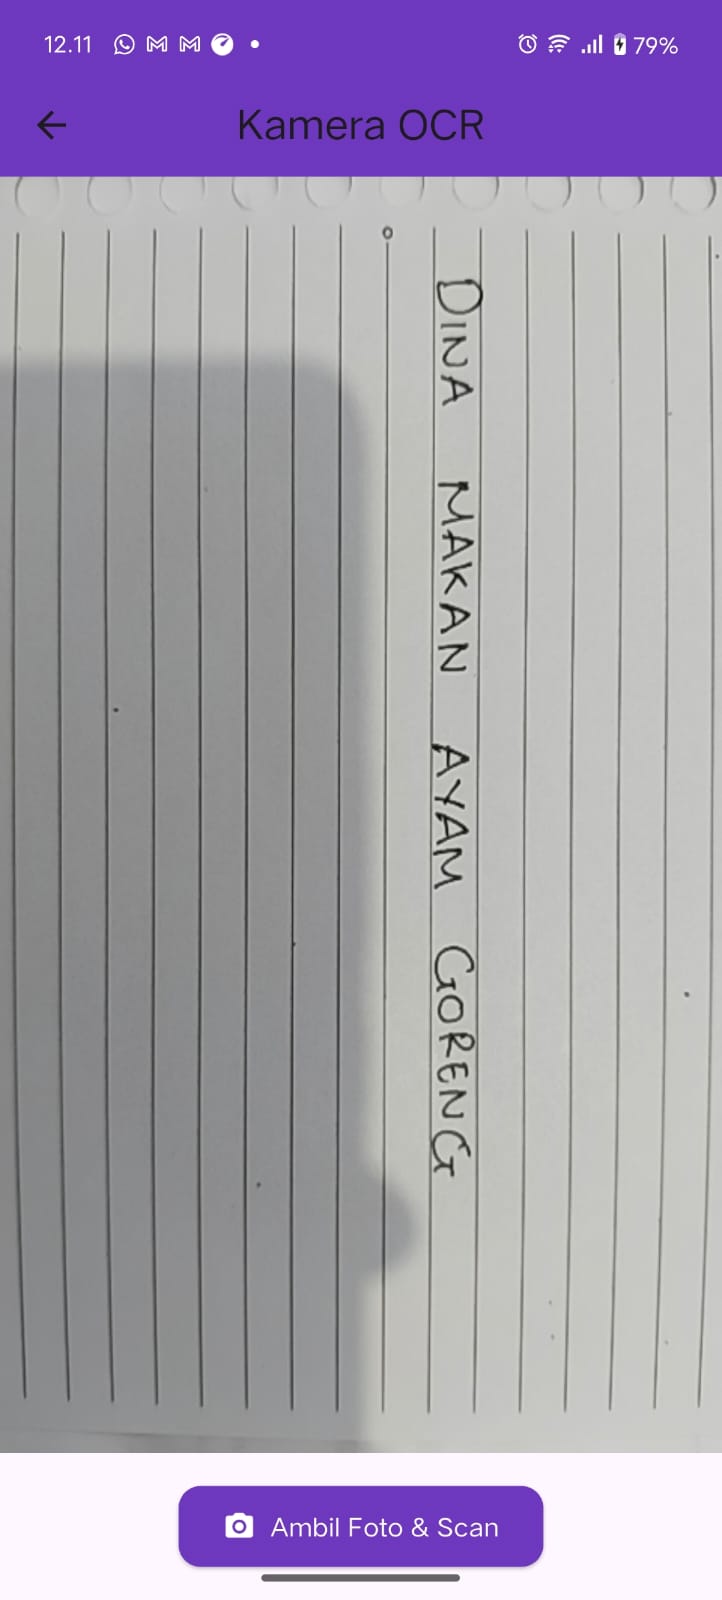 12.11
79%
Kamera OCR
DINA MAKAN AYAM GORENG
Ambil Foto & Scan